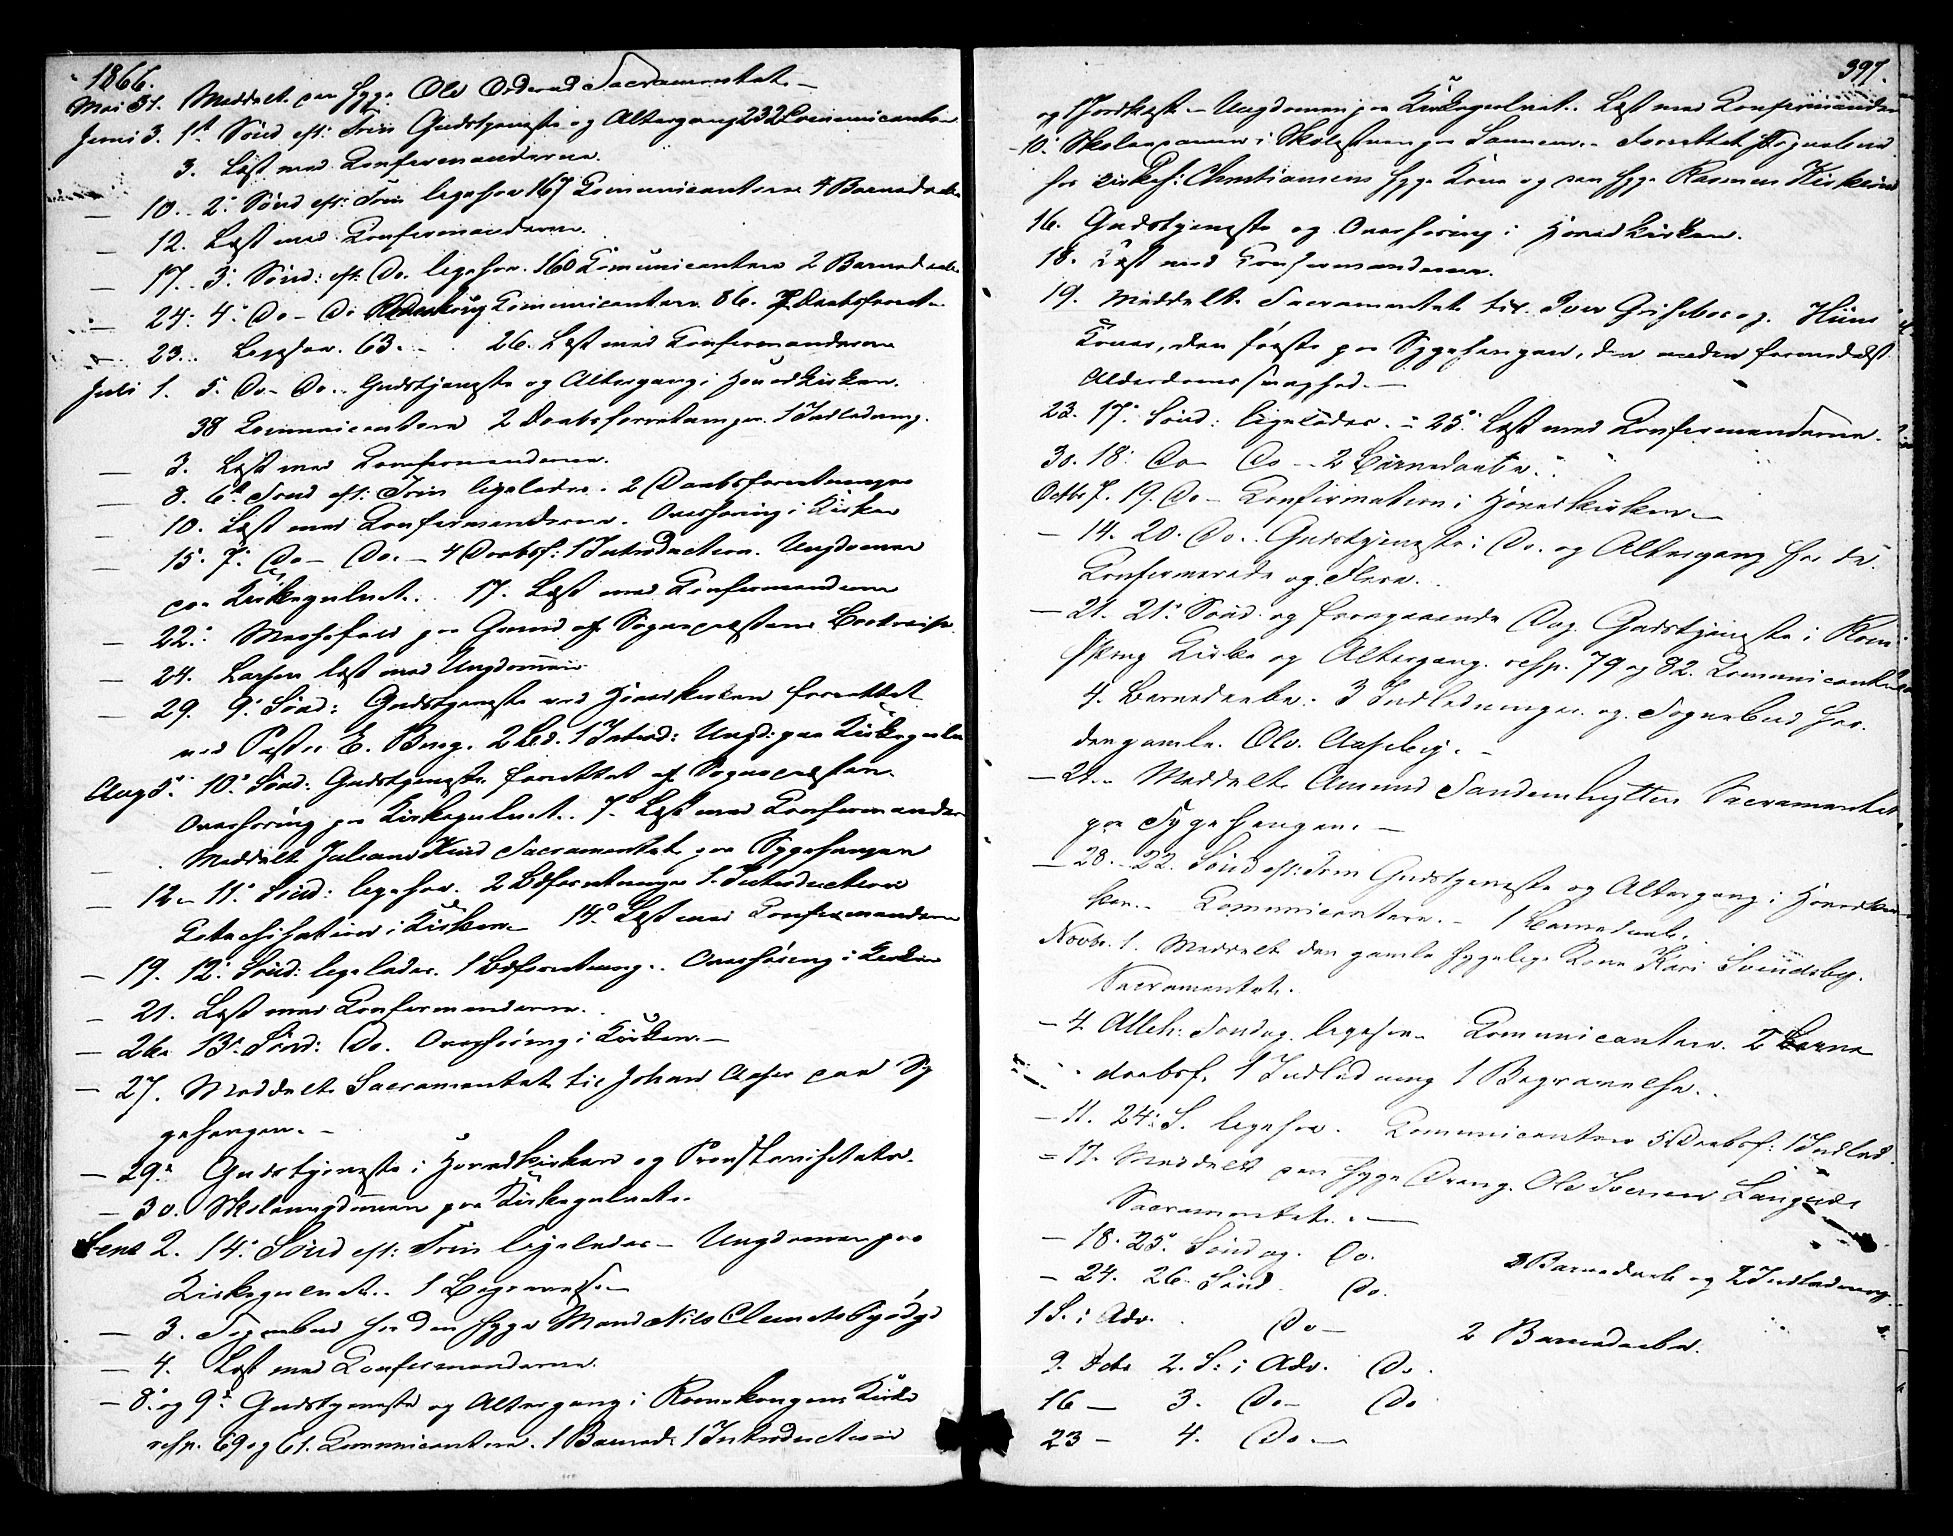 1866.
Mai 31. Meddelt den syge Ole Orderud Sacramentet.—
Juni 3. 1st Sønd eft: Trin Gudstjeneste og Altergang 232 Communicanter
3. Læst med Confirmanderne.
— 10. 2: Sønd eft: Trin ligesaa 167 Communicantere 4 Barnedaabe
— 12. Læst med Confirmanderne.
— 17. 3: Sønd: eft. Do. ligesaa. 160 Communicantere 2 Barnedaabe
— 24. 4: Do — Do Communicantere 86. Daabsforret.
— 23. Ligesaa. 63. — 26. Læst med Confirmanderne
Juli 1. 5. Do — Do. Gudstjeneste og Altergang i Hovedkirken.
38 Communicantere 2 Daabsforretninger. 1 Indledning.
— 3. Læst med Confirmanderne.
— 8. 6te Sønd eft. Trin ligeledes. 2 Daabsforretninger
— 10. Læst med Confirmanderne. Overhøring i Kirken
— 15. 7: Do — Do. — 4 Daabsf: 1 Introduction. Ungdommen
paa Kirkegulvet. 17. Læst med Confirmanderne
— 22: Messefald paa Grund af Sognepræstens
— 24. læst med Ungdommen
— 29. 9: Sønd: Gudstjeneste ved Hovedkirken forrettet
ved Pastor E. Berg. 2 1 Introd: Ungd: paa Kirkegulvet
Aug 5. 10: Sønd: Gudstjeneste forrettet af Sognepræsten.
Overhøring paa Kirkegulvet. 7. Læst med Confirmanderne
— Meddelt Sacramentet paa Sygesengen
— 12 — 11: Sønd: ligesaa. 2 Dbsforretninger 1. Introduction
Catechisation i Kirken 14. Læst med Confirmanderne
— 19. 12: Sønd: ligeledes. 1 Dbsforretning. Overhøring i Kirken
— 21. Læst med Confirmanderne.
— 26. 13: Sønd: Do. Overhøring i Kirken.—
— 27. Meddelt Sacramentet til Johan paa Sy
gesengen.—
— 29: Gudstjeneste i Hovedkirken og Provstevisitats.
— 30. Skoleungdommen paa Kirkegulvet.
2. 14: Sønd eft: Trin ligeledes — Ungdommen paa
Kirkegulvet. 1 Begravelse
— 3. Sognebud hos den syge Mand Nils
— 4. Læst med Confirmanderne.
— 8. og 9: Gudstjeneste og Altergang i Romskougens Kirke
resp. 69 og 61. Communicantere. 1 Barned: 1 Introduction
391.
og 1 Jordkast. — Ungdommen paa Kirkegulvet. Læst med Confirmanderne
— 10. i Forrettet Sognebud
hos Christiansens syge Kone og den syge Rasmus
16. Gudstjeneste og Overhøring i Hovedkirken.
18. Læst med Confirmanderne.
19. Meddelt Sacramentet til Iver og
Kone, den første paa Sygesengen, den anden formedelst
Alderdomssvaghed.—
23. 17: Sønd: ligeledes. — 25: Læst med Confirmanderne.
30. 18: Do — Do — 2 Barnedaabe.
Octbr 7. 19. Do — Confirmation i Hovedkirken.—
— 14. 20. Do. Gudstjeneste i Do. og Altergang for de
Confirmerede og Flere.
— 21. 21: Sønd og foregaaende Dag Gudstjeneste i Rom
skoug Kirke og Altergang resp. 79 og 82. Communicantere
4. Barnedaabe. 3 Indledninger og Sognebud hos
den gamle Ole
— Meddelt Amund Sandemhytten Sacramentet
paa Sygesengen.—
— 28. 22. Sønd eft: Trin Gudstjeneste og Altergang i Hovedkir
ken. Communicantere. — 1 Barnedaab.
Novbr. 1. Meddelt den gamle sygelige Kone Kari
Sacramentet.
— 4. Alleh: Søndag. ligesaa. Communicantere. 2 Barne
daabsf. 1 Indledning 1 Begravelse.
— 11. 24: S. ligesaa. Communicantere 5 Daabsf: 1 Indled.
— 17. Meddelt den syge Dreng Ole Iversen
Sacramentet.—
— 18. 25. Søndag. Do. Barnedaab og 2 Indledning
— 24. 26. Sønd. Do.
1 S. i Adv. Do — 2 Barnedaabe.
9. Dcbr 2. S: i Adv. Do.
16 — 3. Do — Do
23 — 4. Do —